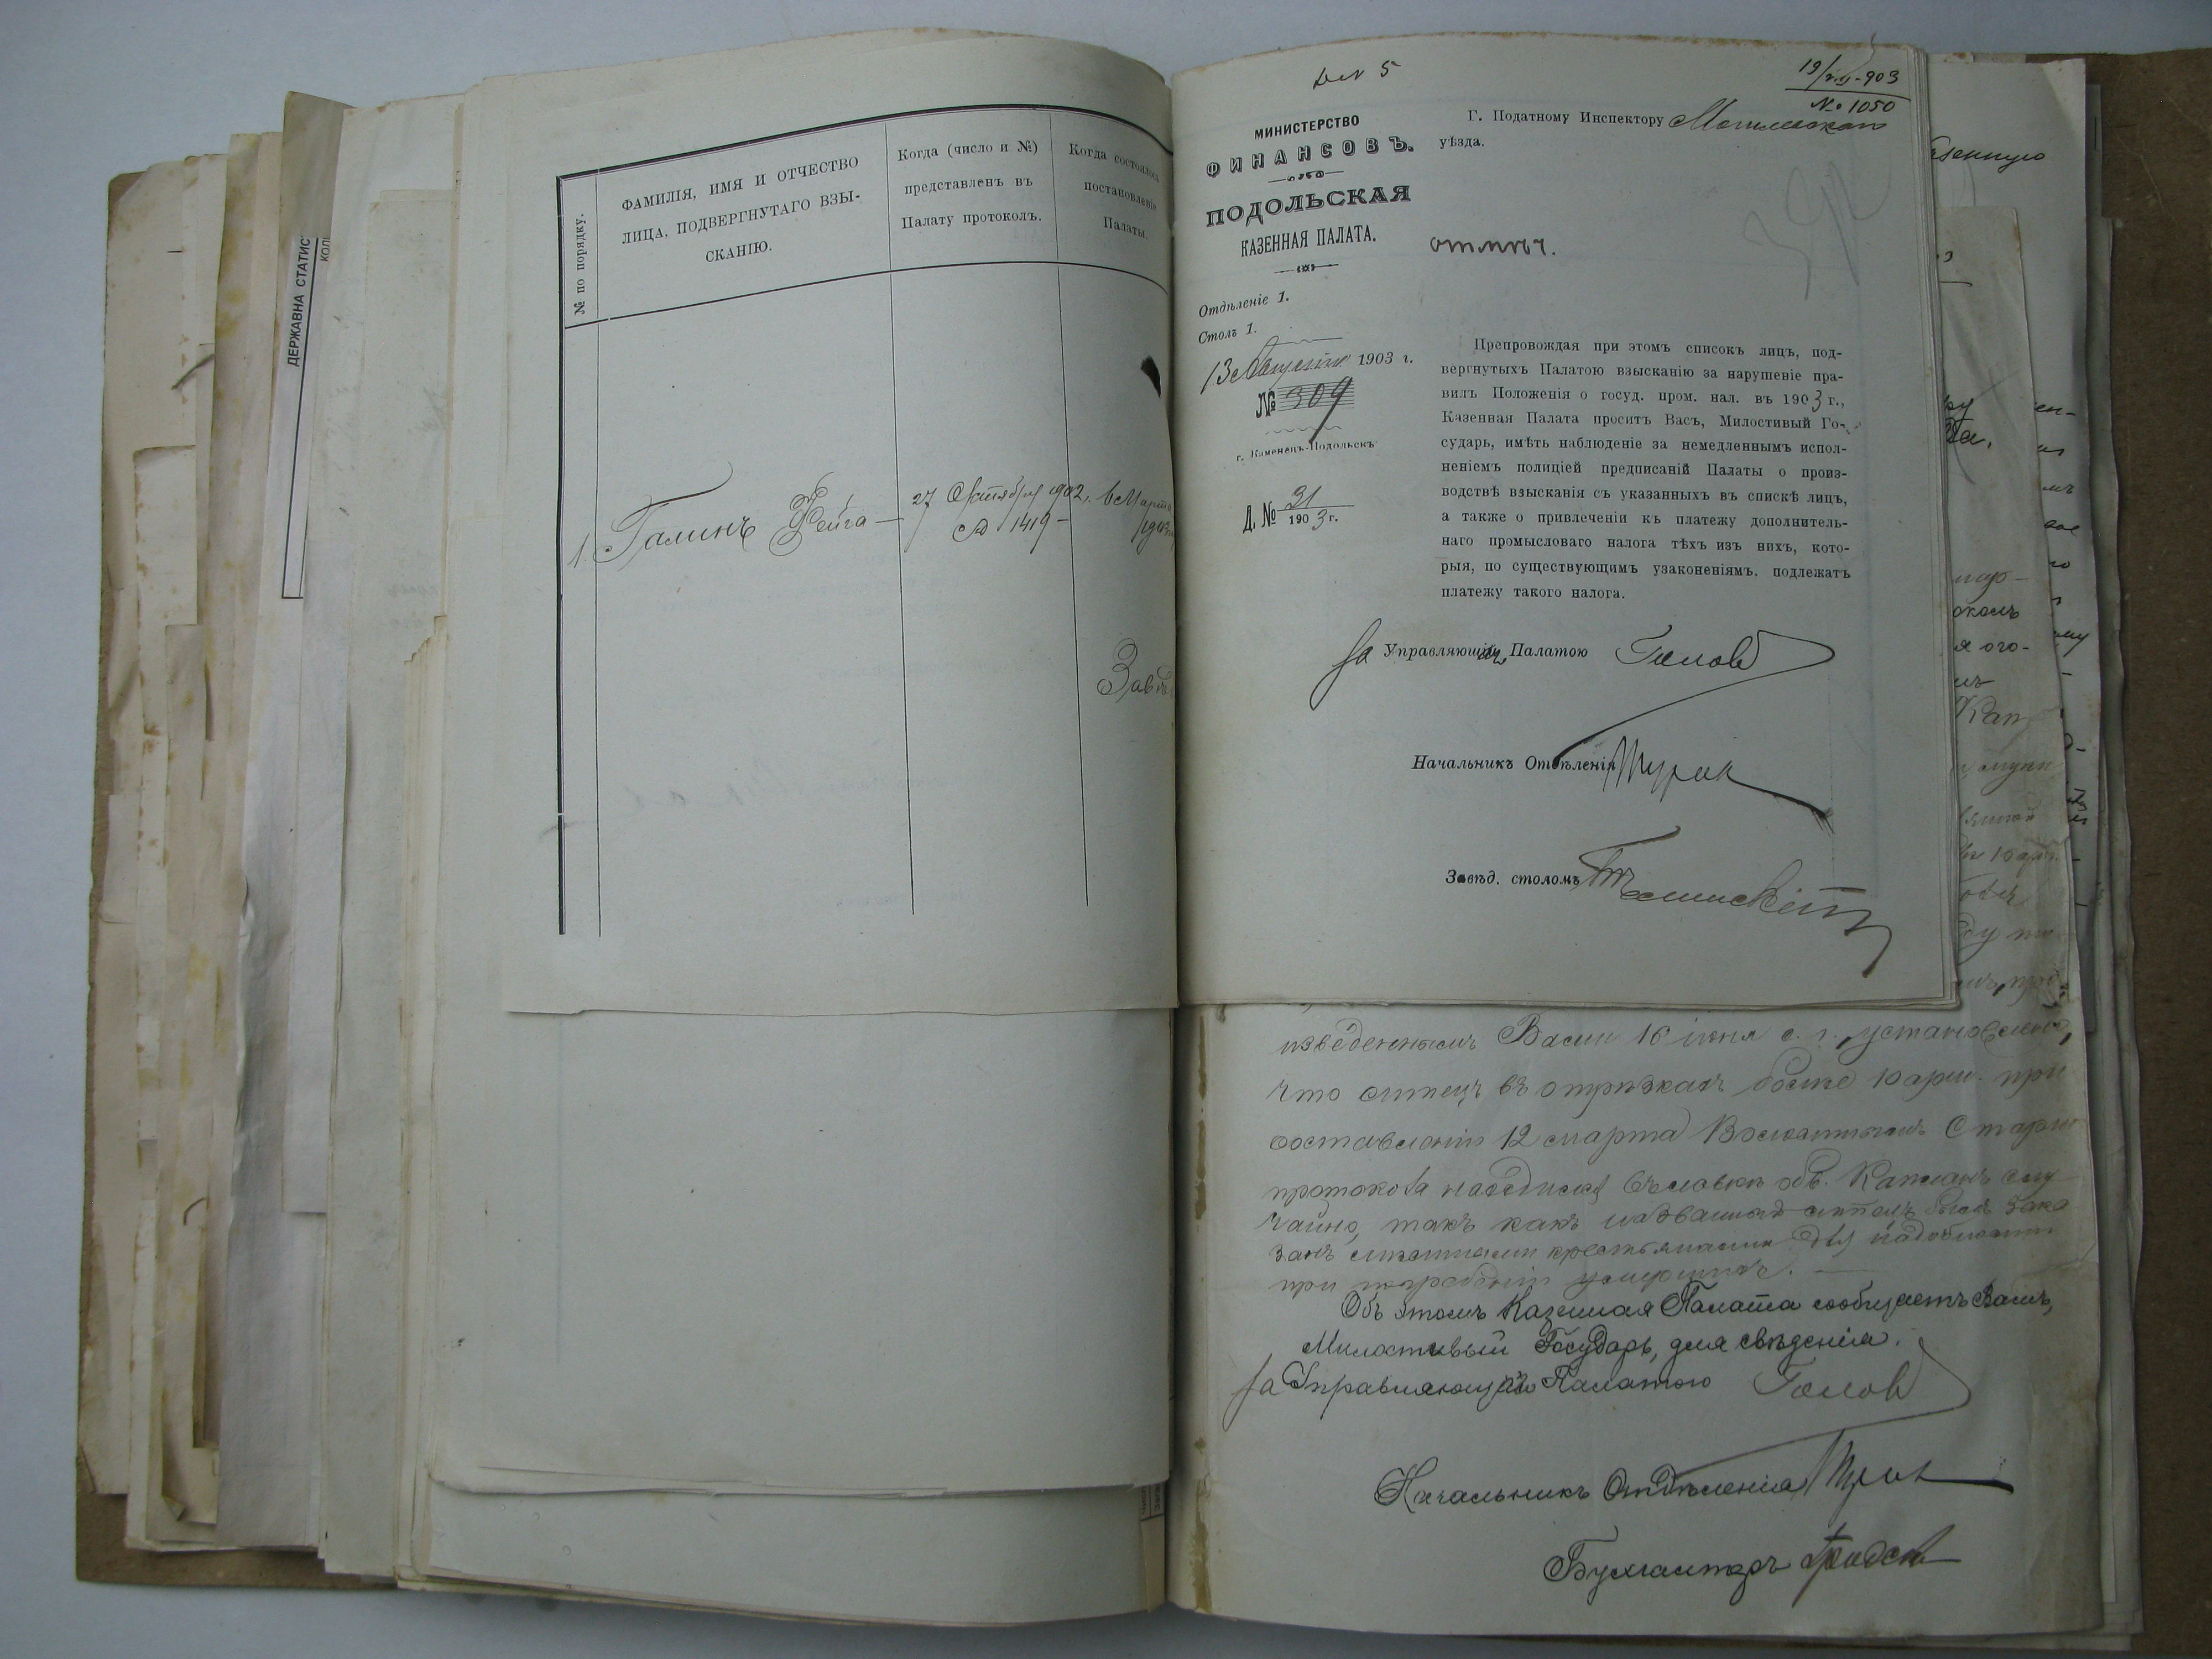 ДЕРЖАВНА СТАТИС
№ по порядку.
ФАМИЛІЯ, ИМЯ И ОТЧЕСТВО
ЛИЦА, ПОДВЕРГНУТАГО ВЗЫ-
СКАНІЮ.
Когда (число и №)
представленъ въ
Палату протоколъ.
Когда состоялось
постановленіе
Палаты.
1. Галинъ Фейга —
27 Октября 1902 г.
№ 1419 —
6 Марта
1903
Завѣд
19/VIII-903
№ 1050
МИНИСТЕРСТВО
ФИНАНСОВЪ.
ПОДОЛЬСКАЯ
КАЗЕННАЯ ПАЛАТА.
Отдѣленіе 1.
Столъ 1.
13 Августа 1903 г.
№ 309
г. Каменецъ-Подольскъ
Д. № 31
1903 г.
Г. Податному Инспектору Могилевскаго
уѣзда.
отмѣч.
Препровождая при этомъ списокъ лицъ, под-
вергнутыхъ Палатою взысканію за нарушеніе пра-
вилъ Положенія о госуд. пром. нал. въ 1903 г.,
Казенная Палата проситъ Васъ, Милостивый Го-
сударь, имѣть наблюденіе за немедленнымъ испол-
неніемъ полиціей предписаній Палаты о произ-
водствѣ взысканія съ указанныхъ въ спискѣ лицъ,
а также о привлеченіи къ платежу дополнитель-
наго промысловаго налога тѣхъ изъ нихъ, кото-
рыя, по существующимъ узаконеніямъ, подлежатъ
платежу такого налога.
За Управляющаго Палатою
Начальникъ Отдѣленія
Завѣд. столомъ
изведеннымъ Вами 16 іюня с. г., установлено,
что ситецъ въ отрѣзкахъ болѣе 10 арш. при
составленіи 12 марта Волостнымъ Старш
протокола находился въ лавкѣ об. Капланъ слу-
чайно, такъ какъ названный ситецъ былъ зака
занъ мѣстными крестьянами для надобности
при погребеніи умершихъ. —
Объ этомъ Казенная Палата сообщаетъ Вамъ,
Милостивый Государь, для свѣдѣнія.
За Управляющаго Палатою
Начальникъ Отдѣленія
Бухгалтеръ